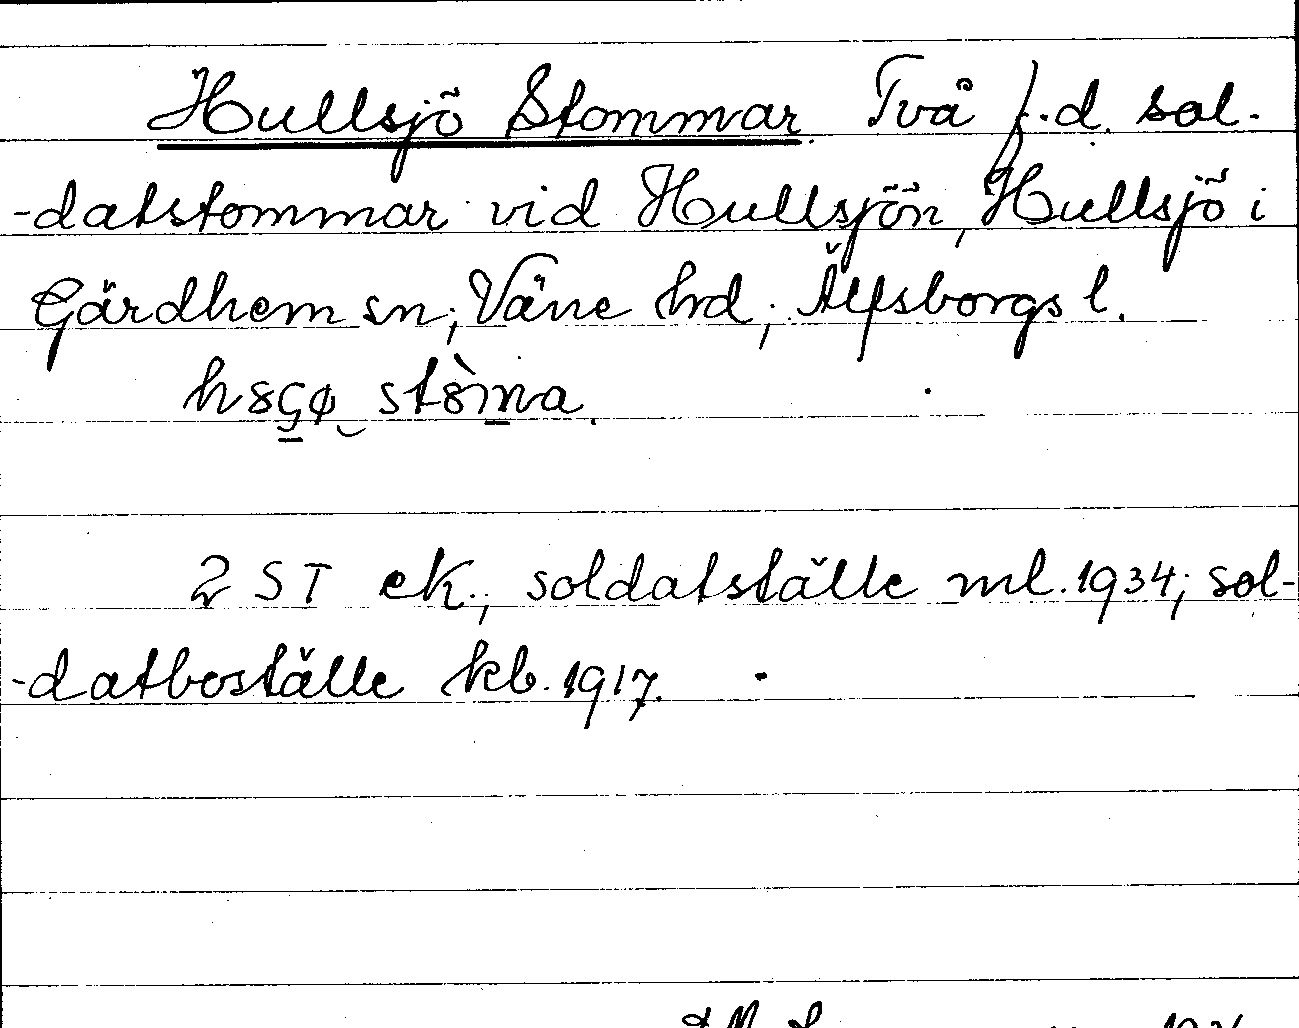 Hullsjö Stommar. Två f.d. sol-
-datstommar vid Hullsjön, Hullsjö i
Gärdhem sn, Väne hrd, Älfsborgs l.
h8çø stò̀m̠a.
2 ST ek., soldatställe ml. 1934; sol-
-datboställe kb. 1917.